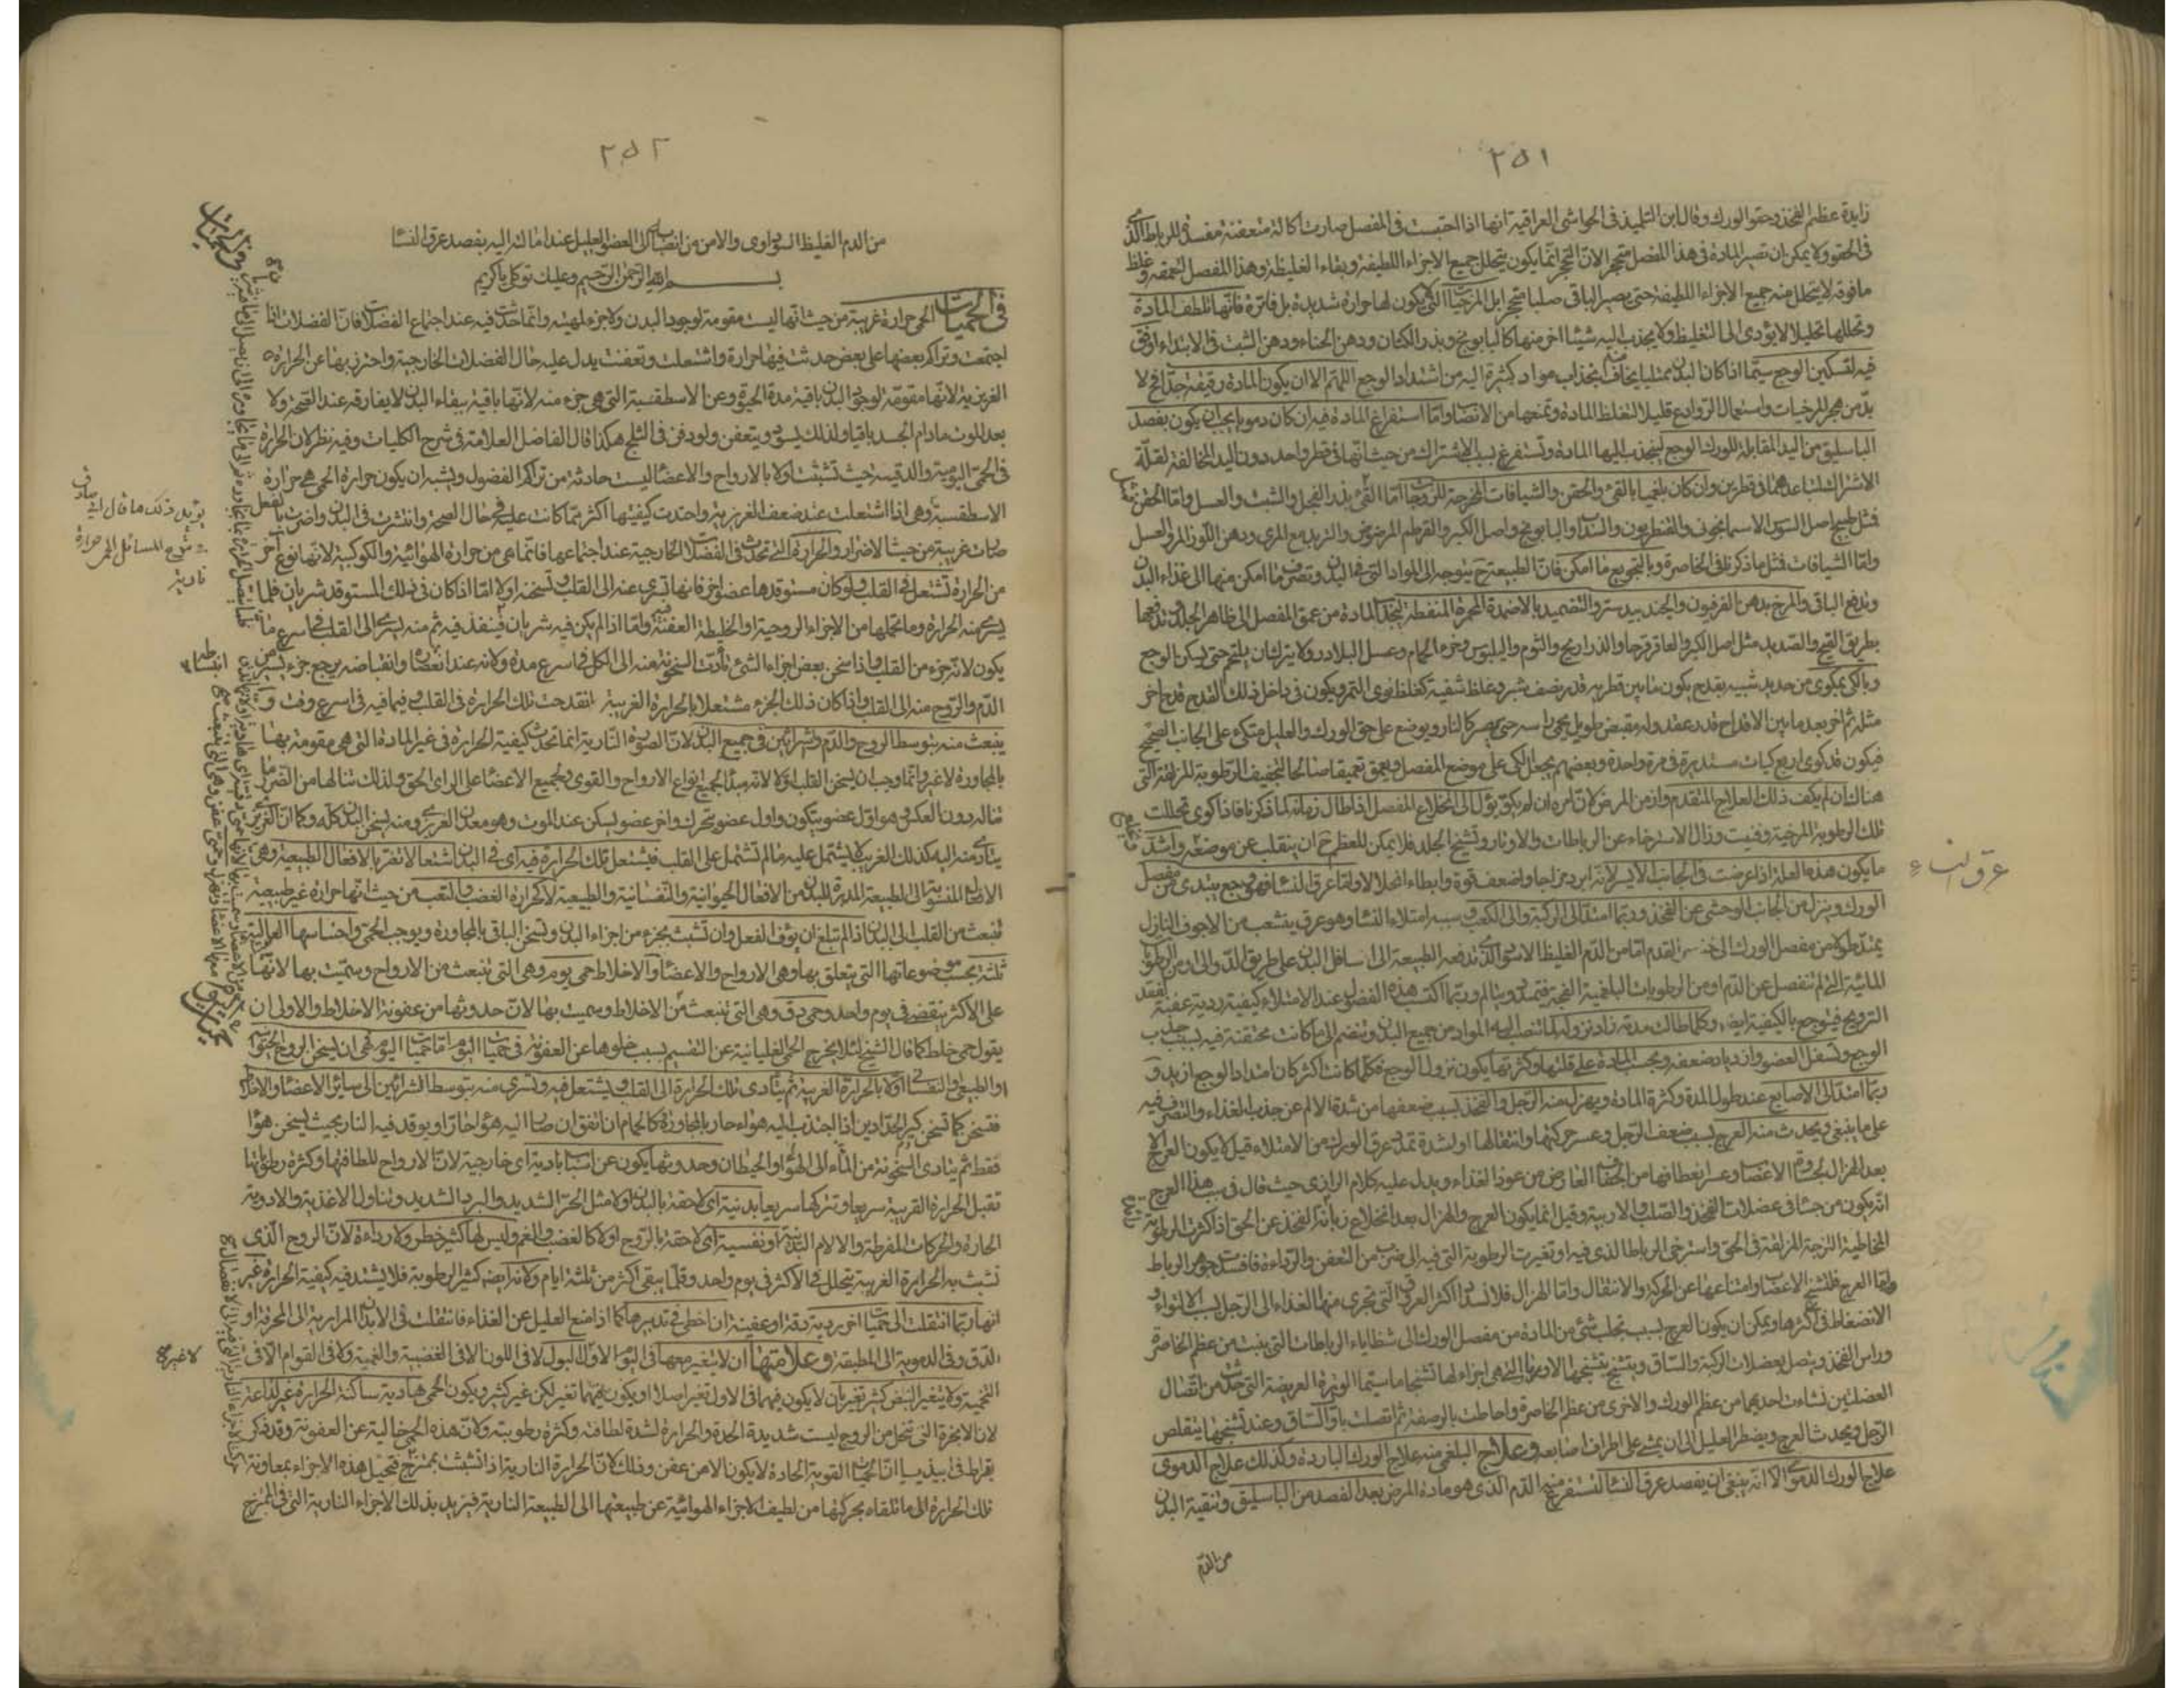 ٢٥١
زايدة عظم الفخذ وحق الورك وقال ابن التلميذ في الحواشي العراقية انها اذا احتبست في المفصل صارت اكالة متعفنة مفسدة للرباط الذي
في الحق ولا يمكن ان تصير المادة في هذا المفصل متحجرة لان التحجر انما يكون بتحلل جميع الاجزاء اللطيفة وبقاء الغليظة وهذا المفصل لعمقه وغلظ
ما فوقه لا يتحلل منه جميع الاجزاء اللطيفة حتى يصير الباقي صلبا متحجرا بل المرخيات التي لا يكون لها حرارة شديدة بل فاترة فانها تلطف المادة
وتحللها تحليلا لا يؤدي الى التغليظ ولا يجذب اليه شيئا اخر منها كالبابونج وبذر الكتان ودهن الحناء ودهن الشبت في الابتداء اوفق
فيه لتسكين الوجع سيما اذا كان البدن ممتليا يخاف انجذاب مواد كثيرة اليه من اشتداد الوجع اللهم الا ان يكون المادة رقيقة جدا فح لا
بد من هجر المرخيات واستعمال الروادع قليلا لتغلظ المادة وتمنعها من الانصباب واما استفراغ المادة فيه ان كان دمويا يجب ان يكون بفصد
الباسليق من اليد المقابلة للورك الوجع لينجذب اليها المادة وتستفرغ بسبب الاشتراك من حيث انها في قطر واحد دون اليد المخالفة لقلة
الاشتراك لتباعدهما في قطرين وان كان بلغميا بالقيء والحقن والشيافات المخرجة للزوجات اما القيء بذر الفجل والشبت والعسل واما الحقن
فمثل طبيخ اصل السوس الاسمانجوني والقنطريون والسنا والبابونج واصل الكبر والقرطم المرضوض والتربد مع المري ودهن اللوز المر والعسل
واما الشيافات فمثل ما ذكرنا في الخاصرة وبالتجويع ما امكن فان الطبيعة ح يتوجه الى المواد التي في البدن وتصرف ما امكن منها الى غذاء البدن
وتدفع الباقي والمرخ بدهن الفرفيون والجندبيدستر والتضميد بالاضمدة المحمرة المنفطة لتجذب المادة من عمق المفصل الى ظاهر الجلد وتدفعها
بطريق القيح والصديد مثل اصل الكبر والعاقرقرحا والذراريح والثوم والبلبوس وخرء الحمام وعسل البلادر ولا يتركان يلتحم حتى يسكن الوجع
وبالكي بمكوى من حديد شبيه بقدح يكون ما بين قطريه قدر نصف شبر وغلظ شفيته كغلظ نوى التمر ويكون في داخل ذلك القدح قدح اخر
مثله ثم اخر بعد ما بين الاقداح قدر عقد وله مقبض طويل يحمى راسه حتى يصير كالنار ويوضع على حق الورك والعليل متكئ على الجانب الصحيح
فيكون قد كوى اربع كيات مستديرة في مرة واحدة وبعضهم يجعل الكي على موضع المفصل ويعمق تعميقا صالحا لتجفيف الرطوبة المزلقة التي
هناك ان لم يكف ذلك العلاج المتقدم وازمن المرض لان امره ان لم يكو يؤل الى انخلاع المفصل اذا طال زمانه كما ذكرنا فاذا كوى تحللت
تلك الرطوبة المرخية وفنيت وزال الاسترخاء عن الرباطات والاوتار وتشنج الجلد فلا يمكن للعظم ح ان ينقلب عن موضعه واشد
ما يكون هذه العلة اذا عرضت في الجانب الايسر لانه ابرد مزاجا واضعف قوة وابطاء انحلالا واما عرق النسا فهو وجع يبتدى من مفصل
عرق النساء
الورك وينزل من الجانب الوحشي عن الفخذ وربما امتد الى الركبة والى الكعب وسببه امتلاء النسا وهو عرق يتشعب من الاجوف النازل
يمتد طولا من مفصل الورك الى القدم اما من الدم الغليظ السوداوي تدفعه الطبيعة الى اسافل البدن على طريق الدوالي او من الرطوبات
المائية التي لم تنفصل عن الدم او من الرطوبات البلغمية الفجة فتمدد ويتالم وربما اكتسب هذه الفضول عند الامتلاء كيفية ردية عفنية لفقد
الترويح فيوجع بالكيفية ايضا وكلما طالت مدته زاد نزوله لما تنصب اليه المواد من جميع البدن وينضم الى ما كانت محتقنة فيه بسبب جلب
الوجع وتسفل العضو وازدياد ضعفه وبحسب المادة على قلتها وكثرتها يكون نزول الوجع فكلما كانت اكثر كان امتداد الوجع ازيد و
ربما امتد الى الاصابع عند طول المدة وكثرة المادة ويهزل منه الرجل والفخذ بسبب ضعفها من شدة الالم عن جذب الغذاء والتصرف فيه
على ما ينبغي ويحدث منه العرج بسبب ضعف الرجل وعسر حركتها وانتقالها او لشدة تمدد عرق الورك من الامتلاء قيل لا يكون العرج
بعد الهزال لجفوة الاعصاب وعسر انعطافها من الجفاف العارض من عوز الغذاء ويدل عليه كلام الرازي حيث قال في سبب هذا العرج
انه يكون من جسا في عضلات الفخذ والصلب والاربية وقيل انما يكون العرج والهزال بعد انخلاع زمانة الفخذ عن الحق اذا كثرت الرطوبة
المخاطية اللزجة المزلقة في الحق واسترخى الرباط الذي فيه او تغيرت الرطوبة التي فيه الى ضرب من التعفن والرداءة فافسد جوهر الرباط
واما العرج فلتشنج الاعصاب وامتناعها عن الحركة والانتقال واما الهزال فلانسداد اكثر العروق التي تجري منها الغذاء الى الرجل بسبب الالتواء و
الانضغاط في اكثرها ويمكن ان يكون العرج بسبب تحلب شئ من المادة من مفصل الورك الى شظاياء الرباطات التي ينبت من عظم الخاصرة
وراس الفخذ ويتصل بعضلات الركبة والساق ويتشنج بتشنجها الاوتار التي هي اجزاء لها تشنجا ما سيما الوترة العريضة التي حدثت من اتصال
العضلتين نشاءت احديهما من عظم الورك والاخرى من عظم الخاصرة واحاطت بالرصفة ثم اتصلت باول الساق وعند تشنجها يتقلص
الرجل ويحدث العرج ويضطر العليل الى ان يمشي على اطراف اصابعه وعلاج البلغمي منه علاج الورك الباردة وكذلك علاج الدموي
علاج الورك الدموي الا انه ينبغي ان يفصد عرق النسا لتستفرغ منه الدم الذي هو مادة المرض بعد الفصد من الباسليق وتنقية البدن
من الدم
٢٥٢
من الدم الغليظ السوداوي والامن من انصبابه الى العضو العليل عند امالته اليه بفصد عرق النسا
بسم الله الرحمن الرحيم وعليك توكلي يا كريم
في الحميات الحمى حرارة غريبة من حيث انها ليست مقومة لوجود البدن ولا جزء لمهيته وانما حدثت فيه عند اجتماع الفضلات فان الفضلات اذا
اجتمعت وتراكم بعضها على بعض حدثت فيها حرارة واشتعلت وتعفنت يدل عليه حال الفضلات الخارجية واحترز بها عن الحرارة
الغريزية لانها مقومة لوجود البدن باقية مدة الحيوة وعن الاسطقسية التي هي جزء منه لانها باقية ببقاء البدن لا يفارقه عند الصحة ولا
بعد الموت ما دام الجسد باقيا ولذلك يسود ويتعفن ولو دفن في الثلج هكذا قال الفاضل العلامة في شرح الكليات وفيه نظر لان الحرارة
في الحمى اليومية والدقية حيث تشبثت اولا بالارواح والاعضاء ليست حادثة من تراكم الفضول ويشبه ان يكون حرارة الحمى هي حرارة
الاسطقسية وهي اذا اشتعلت عند ضعف الغريزية واحتدت كيفيتها اكثر مما كانت عليه في حال الصحة وانتشرت في البدن واضرت بالفعل
صارت غريبة من حيث الاضرار والحرارة التي تحدث في الفضلات الخارجية عند اجتماعها فانما هي من حرارة الهوائية والكوكبية لانها نوع اخر
من الحرارة تشتعل في القلب ولو كان مستوقدها عضو اخر فانها تسري عنه الى القلب وتسخنه اولا اما اذا كان في ذلك المستوقد شريان فلما
يسري منه الحرارة وما تحملها من الاجزاء الروحية او الخلطية العفنة فيه واما اذا لم يكن فيه شريان فينفذ فيه ثم منه يسري الى القلب في اسرع ما
يكون لانه جزء من القلب واذا سخن بعض اجزاء الشئ تأدت السخونة منه الى الكل في اسرع مدة ولانه عند انعصاره وانقباضه يرجع جزء يسير من
الدم والروح منه الى القلب واذا كان ذلك الجزء مشتعلا بالحرارة الغريبة انقدحت تلك الحرارة في القلب وفيما فيه في اسرع وقت و
ينبعث منه بتوسط الروح والدم والشرائين في جميع البدن لان الصورة النارية انما تحدث كيفية الحرارة في غير المادة التي هي مقومة بها
بالمجاورة لا غير وانما وجب ان يسخن القلب اولا لانه مبدأ لجميع انواع الارواح والقوى ولجميع الاعضاء على الراى الحق ولذلك ينالها من الضرر ما
يناله دون العكس هو اول عضو يتكون واول عضو يتحرك واخر عضو يسكن عند الموت وهو معدن الغريزي ومنه يسخن البدن كله وكما ان الغريزي
يتأدى منه اليه كذلك الغريب لا يشتمل عليه ما لم تشتمل على القلب فيشتعل تلك الحرارة فيه اي في البدن اشتعالا تضر بالافعال الطبيعية وهي
الافعال المنسوبة الى الطبيعة المدبرة للبدن من الافعال الحيوانية والنفسانية والطبيعية لا كحرارة الغضب والتعب من حيث انها حرارة غير طبيعية
تنبعث من القلب الى البدن اذا لم تبلغ ان يؤف الفعل وان تشبث بجزء من اجزاء البدن وتسخن الباقي بالمجاورة ويوجب الحمى واجناسها العالية
ثلثة بحسب موضوعاتها التي يتعلق بها وهي الارواح والاعضاء والاخلاط حمى يوم وهي التي تنبعث من الارواح وسميت بها لانها
على الاكثر ينقضي في يوم واحد وحمى دق وهي التي تنبعث من الاخلاط وسميت بها لان حدوثها من عفونة الاخلاط والاولى ان
يقول حمى خلط كما قال الشيخ لئلا يخرج الحمى الغليانية عن التقسيم بسبب خلوها عن العفونة في حميات اليوم اما حميات اليوم فهي ان يسخن الروح الحيواني
او الطبيعي والنفساني اولا بالحرارة الغريبة ثم يتأدى تلك الحرارة الى القلب ويشتعل فيه وتسري منه بتوسط الشرائين الى سائر الاعضاء والاخلاط
فتسخن كما تسخن كير الحدادين اذا انجذب اليه هواء حار بالمجاورة كالحمام ان اتفق ان صب اليه هواء حارا او يوقد فيه النار بحيث يسخن هواؤه
فقط ثم يتأدى السخونة من الماء الى الهواء او الحيطان وحدوثها يكون عن اسباب بادية اي خارجية لان الارواح للطافتها وكثرة رطوبتها
تقبل الحرارة الغريبة سريعا وتتركها سريعا بدنية اي لاحقة بالبدن اولا مثل الحر الشديد والبرد الشديد وتناول الاغذية والادوية
الحارة والحركات المفرطة والالام البدنية او نفسية اي لاحقة بالروح اولا كالغضب والغم وليس لها كثير خطر ولا رداءة لان الروح الذي
تشبث به الحرارة الغريبة يتحلل في الاكثر في يوم واحد وقلما يبقى اكثر من ثلثة ايام ولانه ايضا كثير الرطوبة فلا يشتد فيه كيفية الحرارة غير
انها ربما انتقلت الى حميات اخر ردية دقية او عفنية ان اخطئ في تدبيرها كما اذا منع العليل عن الغذاء فانتقلت في الابدان المرارية الى المحرقة او
الدق وفي الدموية الى المطبقة وعلامتها ان لا يتغير معها في اليوم الاول البول لا في اللون الا في الغضبية والغمية ولا في القوام الا في
التخمية ولا يتغير النبض كثير تغير بان لا يكون فيهما في الاول تغير اصلا او يكون فيهما تغير لكن غير كثير ويكون الحمى هادية ساكنة الحرارة غير لذاعة
لان الابخرة التي تتحلل من الروح ليست شديدة الحدة والحرارة لشدة لطافته وكثرة رطوبته ولان هذه الحمى خالية عن العفونة وقد ذكر
بقراط في ابيذيميا ان الحميات القوية الحادة لا يكون الا من عفن وذلك لان الحرارة النارية اذا تشبثت بممتزج فتحيل هذه الاجزاء بمعاونة
تلك الحرارة الى ما تلقاه بحركتها من لطيف الاجزاء الهوائية عن طبيعتها الى الطبيعة النارية فيزيد بذلك الاجزاء النارية التي في الممتزج
يؤيد ذلك ما قال ابن ابي صادق
في شرح المسائل الحمى حرارة
نارية
لا غير صح